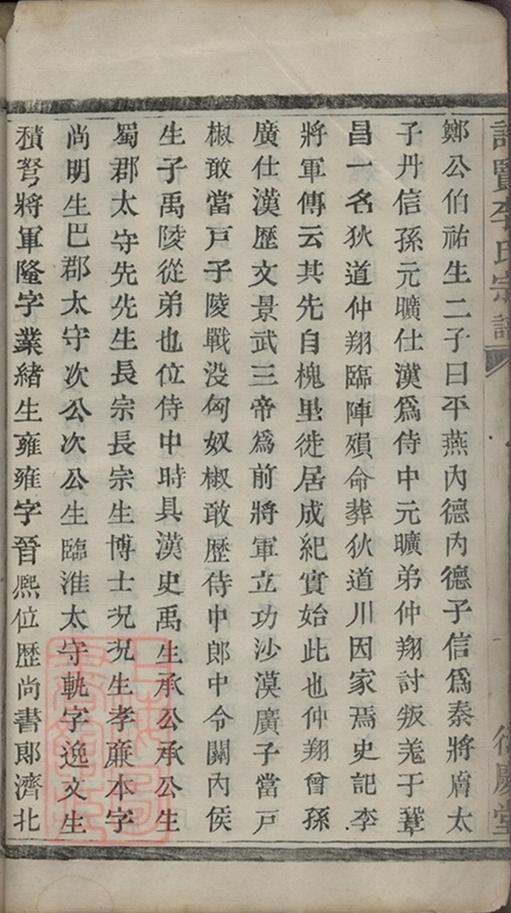 賢李氏宗譜
慶堂
鄭公伯祐生二子曰平燕內德內德子信爲秦將虜太
子丹信孫元曠仕漢爲侍中元曠弟仲翔討叛羗于
昌一名狄道仲翔臨陣殞命葬狄道川因家焉史記李
將軍傳云其先自槐里徙居成紀實始此也仲翔曾孫
廣仕漢歷文景武三帝爲前將軍立功沙漠廣子當戸
椒敢當戸子陵戰没匈奴椒敢歷侍中郎中令關內侯
生子禹陵從弟也位侍中時具漢史禹生承公承公生
蜀郡太守先先生長宗長宗生博士況況生孝廉本字
尚明生巴郡太守次公次公生臨淮太守軌字逸文生
積弩將軍隆字業緒生雍雍字晉熈位歷尚書郎濟北